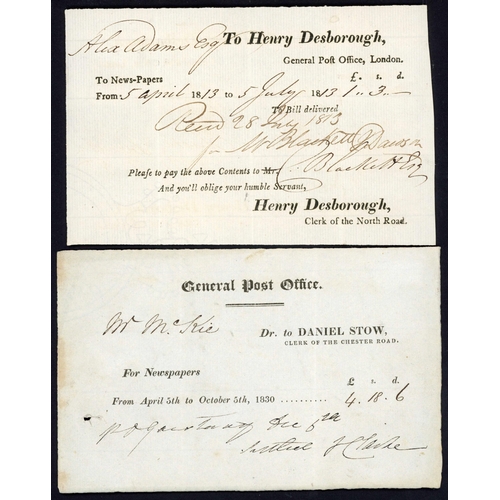 Alex Adams Esq To Henry Desborough,
General Post Office, London.
To News-Papers £. s. d.
From 5 April 1813 to 5 July 1813 1.. 3..—
To Bill delivered
28 July 1813
for Mr Blackett
Please to pay the above Contents to Mr. C. Blackett Esq
And you'll oblige your humble Servant,
Henry Desborough,
Clerk of the North Road.
General Post Office.
Mr McKie Dr. to DANIEL STOW,
CLERK OF THE CHESTER ROAD.
For Newspapers £ s. d.
From April 5th to October 5th, 1830 .......... 4. 18. 6
Settled